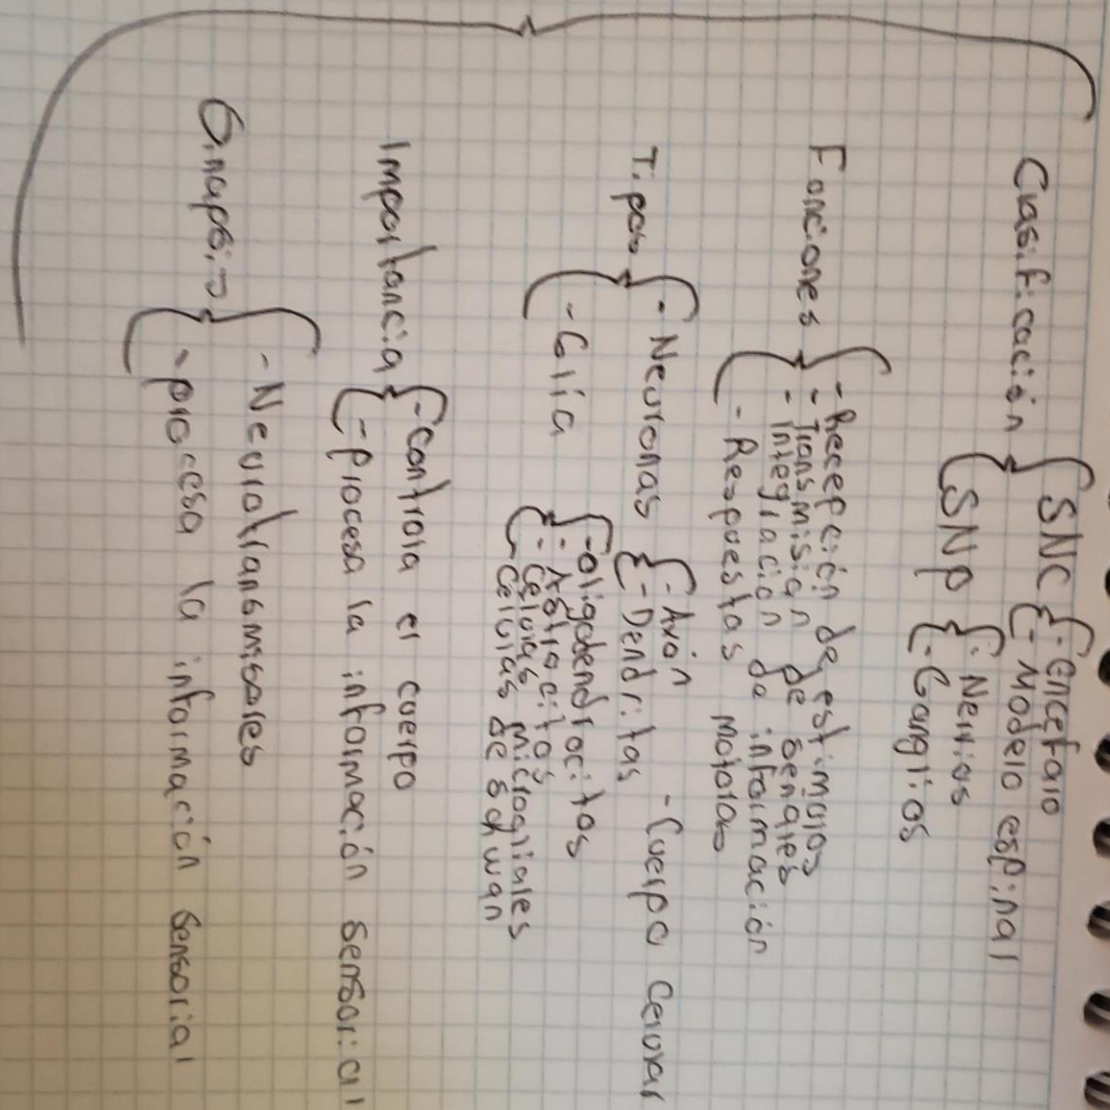 Clasificación
SNC
- encefalo
- Modelo espinal
SNP
- Nervios
- Ganglios
Funciones
- Recepción de estimulos
- Transmisión de señales
- Integración de información
- Respuestas motoras
Tipos
- Neuronas
- Axón
- Dendritas
- Cuerpo celular
- Glia
- Oligodendrocitos
- Astrocitos
- Celulas microgliales
- Celulas de schwan
Importancia
- Controla el cuerpo
- Procesa la información sensorial
Sinapsis
- Neurotransmisores
- procesa la información sensorial